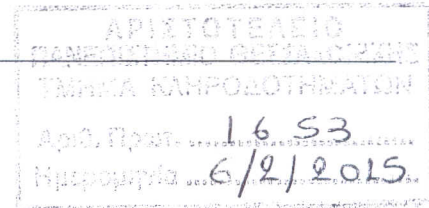 ΑΡΙΣΤΟΤΕΛΕΙΟ
ΠΑΝΕΠΙΣΤΗΜΙΟ ΘΕΣΣΑΛΟΝΙΚΗΣ
ΤΜΗΜΑ ΚΛΗΡΟΔΟΤΗΜΑΤΩΝ
Αριθ. Πρωτ. 1653
Ημερομηνία 6/2/2015